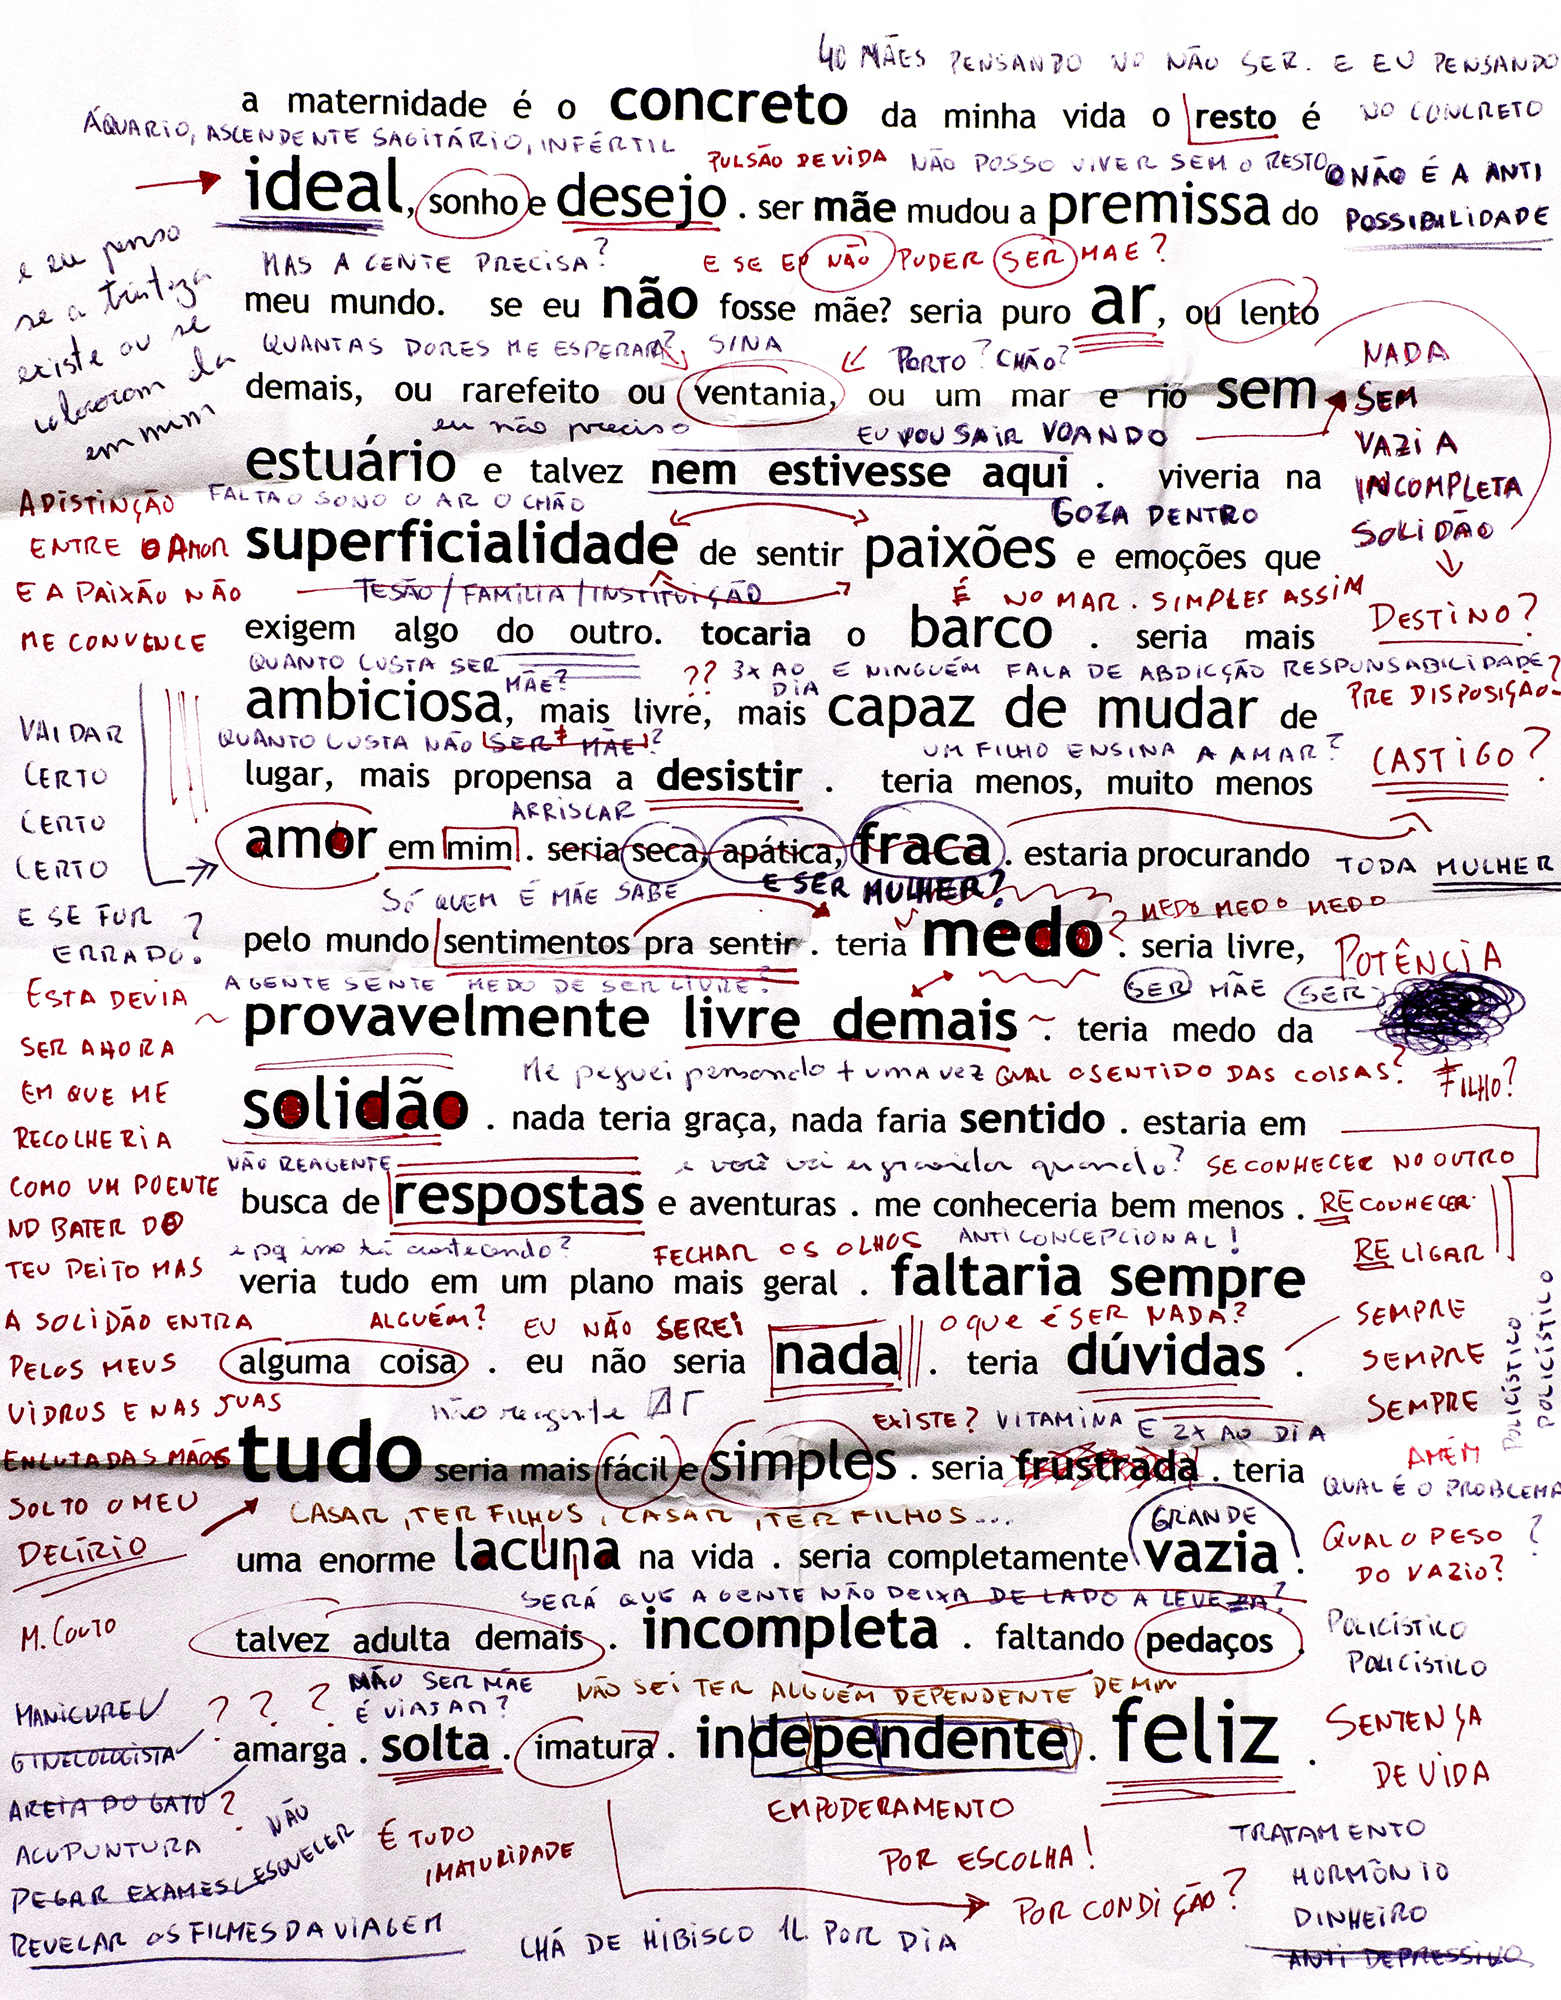 40 MÃES PENSANDO NO NÃO SER. E EU PENSANDO
NO CONCRETO
a maternidade é o concreto da minha vida o resto é
ÁQUARIO, ASCENDENTE SAGITÁRIO, INFÉRTIL
PULSÃO DE VIDA
NÃO POSSO VIVER SEM O RESTO
O NÃO É A ANTI
POSSIBILIDADE
ideal, sonho e desejo . ser mãe mudou a premissa do
MAS A GENTE PRECISA?
E SE EU NÃO PUDER SER MAE?
meu mundo. se eu não fosse mãe? seria puro ar, ou lento
QUANTAS DORES ME ESPERAM?, SINA
PORTO? CHÃO?
demais, ou rarefeito ou ventania, ou um mar e rio sem
e eu penso
se a tristeza
existe ou se
colocaram da
em mim
NADA
SEM
VAZIA
INCOMPLETA
SOLIDÃO
eu não preciso
EU VOU SAIR VOANDO
estuário e talvez nem estivesse aqui . viveria na
FALTA O SONO O AR O CHÃO
GOZA DENTRO
superficialidade de sentir paixões e emoções que
TESÃO / FAMÍLIA / INSTITUIÇÃO
É NO MAR. SIMPLES ASSIM
exigem algo do outro. tocaria o barco . seria mais
A DISTINÇÃO
ENTRE O AMOR
E A PAIXÃO NÃO
ME CONVENCE
DESTINO?
QUANTO CUSTA SER
MÃE?
?? 3X AO
DIA
E NINGUÉM FALA DE ABDICÇÃO RESPONSABILIDADE?
PRE DISPOSIÇÃO
ambiciosa, mais livre, mais capaz de mudar de
QUANTO CUSTA NÃO SER MÃE?
UM FILHO ENSINA A AMAR?
CASTIGO?
lugar, mais propensa a desistir . teria menos, muito menos
ARRISCAR
amor em mim . seria seca, apática, fraca . estaria procurando
TODA MULHER
VAI DAR
CERTO
CERTO
CERTO
E SE FOR
ERRADO?
SÓ QUEM É MÃE SABE
E SER MULHER?
? MEDO MEDO MEDO
pelo mundo sentimentos pra sentir . teria medo . seria livre,
POTÊNCIA
A GENTE SENTE MEDO DE SER LIVRE?
SER MÃE SER
provavelmente livre demais . teria medo da
Me peguei pensando + UMA VEZ QUAL O SENTIDO DAS COISAS?
FILHO?
solidão . nada teria graça, nada faria sentido . estaria em
NÃO REAGENTE
e você vai engravidar quando?
SE CONHECER NO OUTRO
busca de respostas e aventuras . me conheceria bem menos .
RECONHECER
RE LIGAR
e pq isso tá acontecendo?
FECHAR OS OLHOS
ANTICONCEPCIONAL!
veria tudo em um plano mais geral . faltaria sempre
ALGUÉM?
EU NÃO SEREI
O QUE É SER NADA?
alguma coisa . eu não seria nada . teria dúvidas .
SEMPRE
SEMPRE
SEMPRE
AMÉM
POLICÍSTICO
POLICÍSTICO
não reagente
EXISTE?
VITAMINA E 2X AO DIA
tudo seria mais fácil e simples . seria frustrada . teria
ESTA DEVIA
SER A HORA
EM QUE ME
RECOLHERIA
COMO UM POENTE
NO BATER DO
TEU PEITO MAS
A SOLIDÃO ENTRA
PELOS MEUS
VIDROS E NAS SUAS
ENLUTADAS MÃOS
SOLTO O MEU
DELÍRIO
M. COUTO
QUAL É O PROBLEMA
?
CASAR, TER FILHOS, CASAR, TER FILHOS...
GRANDE
uma enorme lacuna na vida . seria completamente vazia .
QUAL O PESO
DO VAZIO?
SERÁ QUE A GENTE NÃO DEIXA DE LADO A LEVEZA?
talvez adulta demais . incompleta . faltando pedaços .
POLICÍSTICO
POLICÍSTICO
? ? ?
NÃO SER MÃE
É VIAJAR?
NÃO SEI TER ALGUÉM DEPENDENTE DE MIM
amarga . solta . imatura . independente . feliz .
SENTENÇA
DE VIDA
MANICURE
GINECOLOGISTA
AREIA DO GATO ?
ACUPUNTURA
PEGAR EXAMES
NÃO
ESQUECER
REVELAR OS FILMES DA VIAGEM
É TUDO
IMATURIDADE
EMPODERAMENTO
POR ESCOLHA!
POR CONDIÇÃO?
CHÁ DE HIBISCO 1L POR DIA
TRATAMENTO
HORMÔNIO
DINHEIRO
ANTI DEPRESSIVO